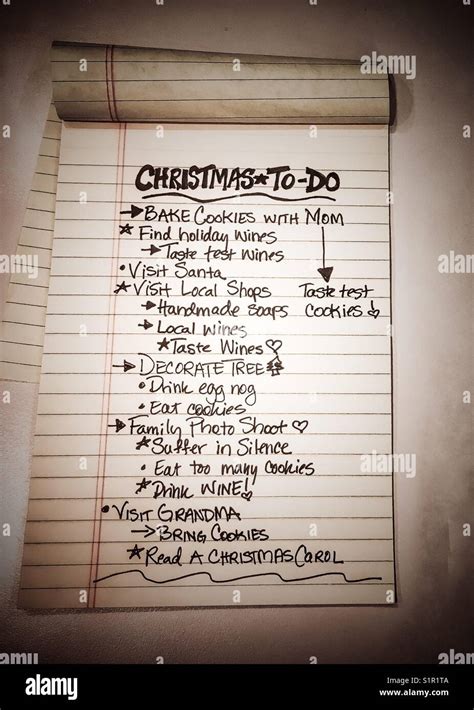 CHRISTMAS★TO-DO
→ BAKE COOKIES WITH MOM
★ Find holiday wines
→ Taste test wines
• Visit Santa
★ Visit Local Shops
Taste test
cookies!
→ Handmade soaps
→ Local wines
★ Taste Wines ♡
→ DECORATE TREE
• Drink egg nog
• Eat cookies
→ Family Photo Shoot ♡
★ Suffer in Silence
• Eat too many cookies
★ Drink WINE!
• VISIT GRANDMA
→ BRING COOKIES
★ Read A CHRISTMAS CAROL
alamy
alamy
Image ID: S1R1TA
www.alamy.com